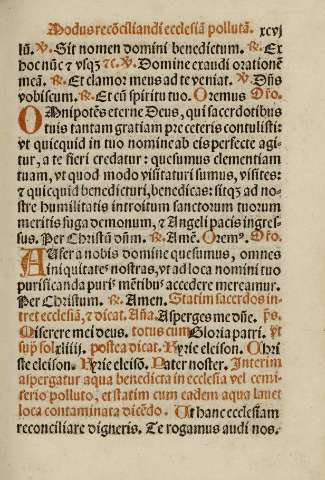 Modus recōciliandi ecclesiā pollutā. xcvj
lū. ℣. Sit nomen domini benedictum. ℟. Ex
hoc nūc et vsqꝫ ⁊c. ℣. Domine exaudi orationē
meā. ℟. Et clamor meus ad te veniat. ℣. Dn̄s
vobiscum. ℟. Et cū spiritu tuo. Oremus Oŕo.
OMnipotēs eterne Deus, qui sacerdotibus
tuis tantam gratiam pre ceteris contulisti:
vt quicquid in tuo nomine ab eis perfecte agi-
tur, a te fieri credatur: quesumus clementiam
tuam, vt quod modo visitaturi sumus, visites:
et quicquid benedicturi, benedicas: sitqꝫ ad no-
stre humilitatis introitum sanctorum tuorum
meritis fuga demonum, et Angeli pacis ingres-
sus. Per Christū dn̄m. ℟. Amē. Oremꝰ. Oŕo.
AUfer a nobis domine quesumus, omnes
iniquitates nostras, vt ad loca nomini tuo
purificanda puris mētibus accedere mereamur.
Per Christum. ℟. Amen. Statim sacerdos in-
tret ecclesiā, et dicat. Añā. Asperges me dn̄e. ps.
Miserere mei deus. totus cum Gloria patri. vt
sup̄ fol xliiij. postea dicat. Kyrie eleison. Chri
ste eleison. Kyrie eleisō. Pater noster. Interim
aspergatur aqua benedicta in ecclesia vel cemi-
terio polluto, et statim cum eadem aqua lauet
loca contaminata dicēdo. Ut hanc ecclesiam
reconciliare digneris. Te rogamus audi nos.